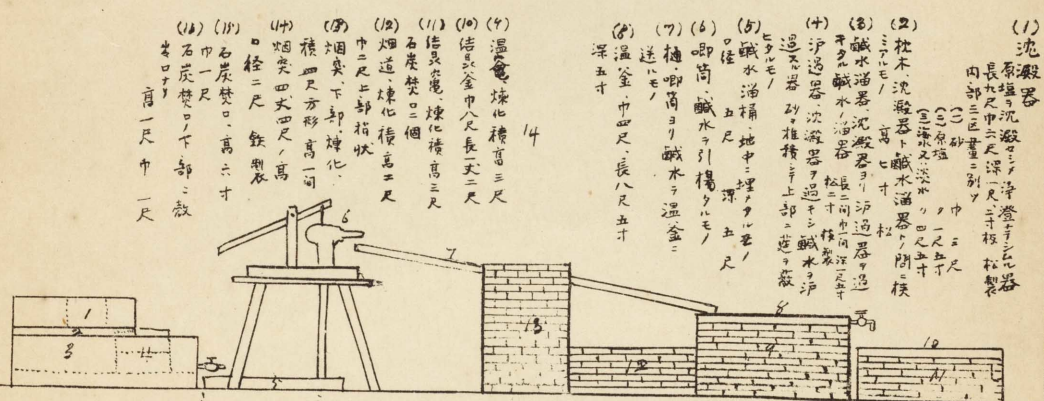 (1) 沈澱器
原塩ヲ沈澱セシメ浄澄ナラシムル器
長九尺巾六尺深一尺二寸板 松製
内部ニ区画ニ別ツ
(一) 砂 巾 三尺
(二) 原塩 〃 一尺五寸
(三) 海水又ハ淡水 〃 四尺五寸
(2) 枕木、沈澱器ト鹹水溜器トノ間ニ横
ミアルモノ 高 七寸 松
(3) 鹹水溜器、沈澱器ヨリ沪過器ヲ過
キタル鹹水ノ溜器 長二間巾一間深一尺五寸
松二寸 板製
(4) 沪過器、沈澱器ヲ過キシ鹹水ヲ沪
過スル器 砂ヲ堆積シテ上部ニ莚ヲ敷
ヒタルモノ
(5) 鹹水溜桶、地中ニ埋メタル
口径 五尺 深 五尺
(6) 喞筒、鹹水ヲ引揚クルモノ
(7) 樋、喞筒ヨリ鹹水ヲ温釜ニ
送ルモノ
(8) 温釜、巾四尺、長八尺五寸
深五寸
(9) 温竈、煉化積高三尺
(10) 結晶釜巾八尺長一丈二尺
(11) 結晶竈、煉化積高三尺
石炭焚口二個
(12) 烟道、煉化積高二尺
巾二尺上部樋状
(13) 烟突、下部、煉化、
積四尺方形高一間
(14) 烟突四丈四尺ノ高
口径二尺 鉄製
(15) 石炭焚口、高六寸
巾一尺
(16) 石炭焚口ノ下部
高一尺巾一尺
14
6
7
1
2
3
4
5
13
12
8
9
10
11